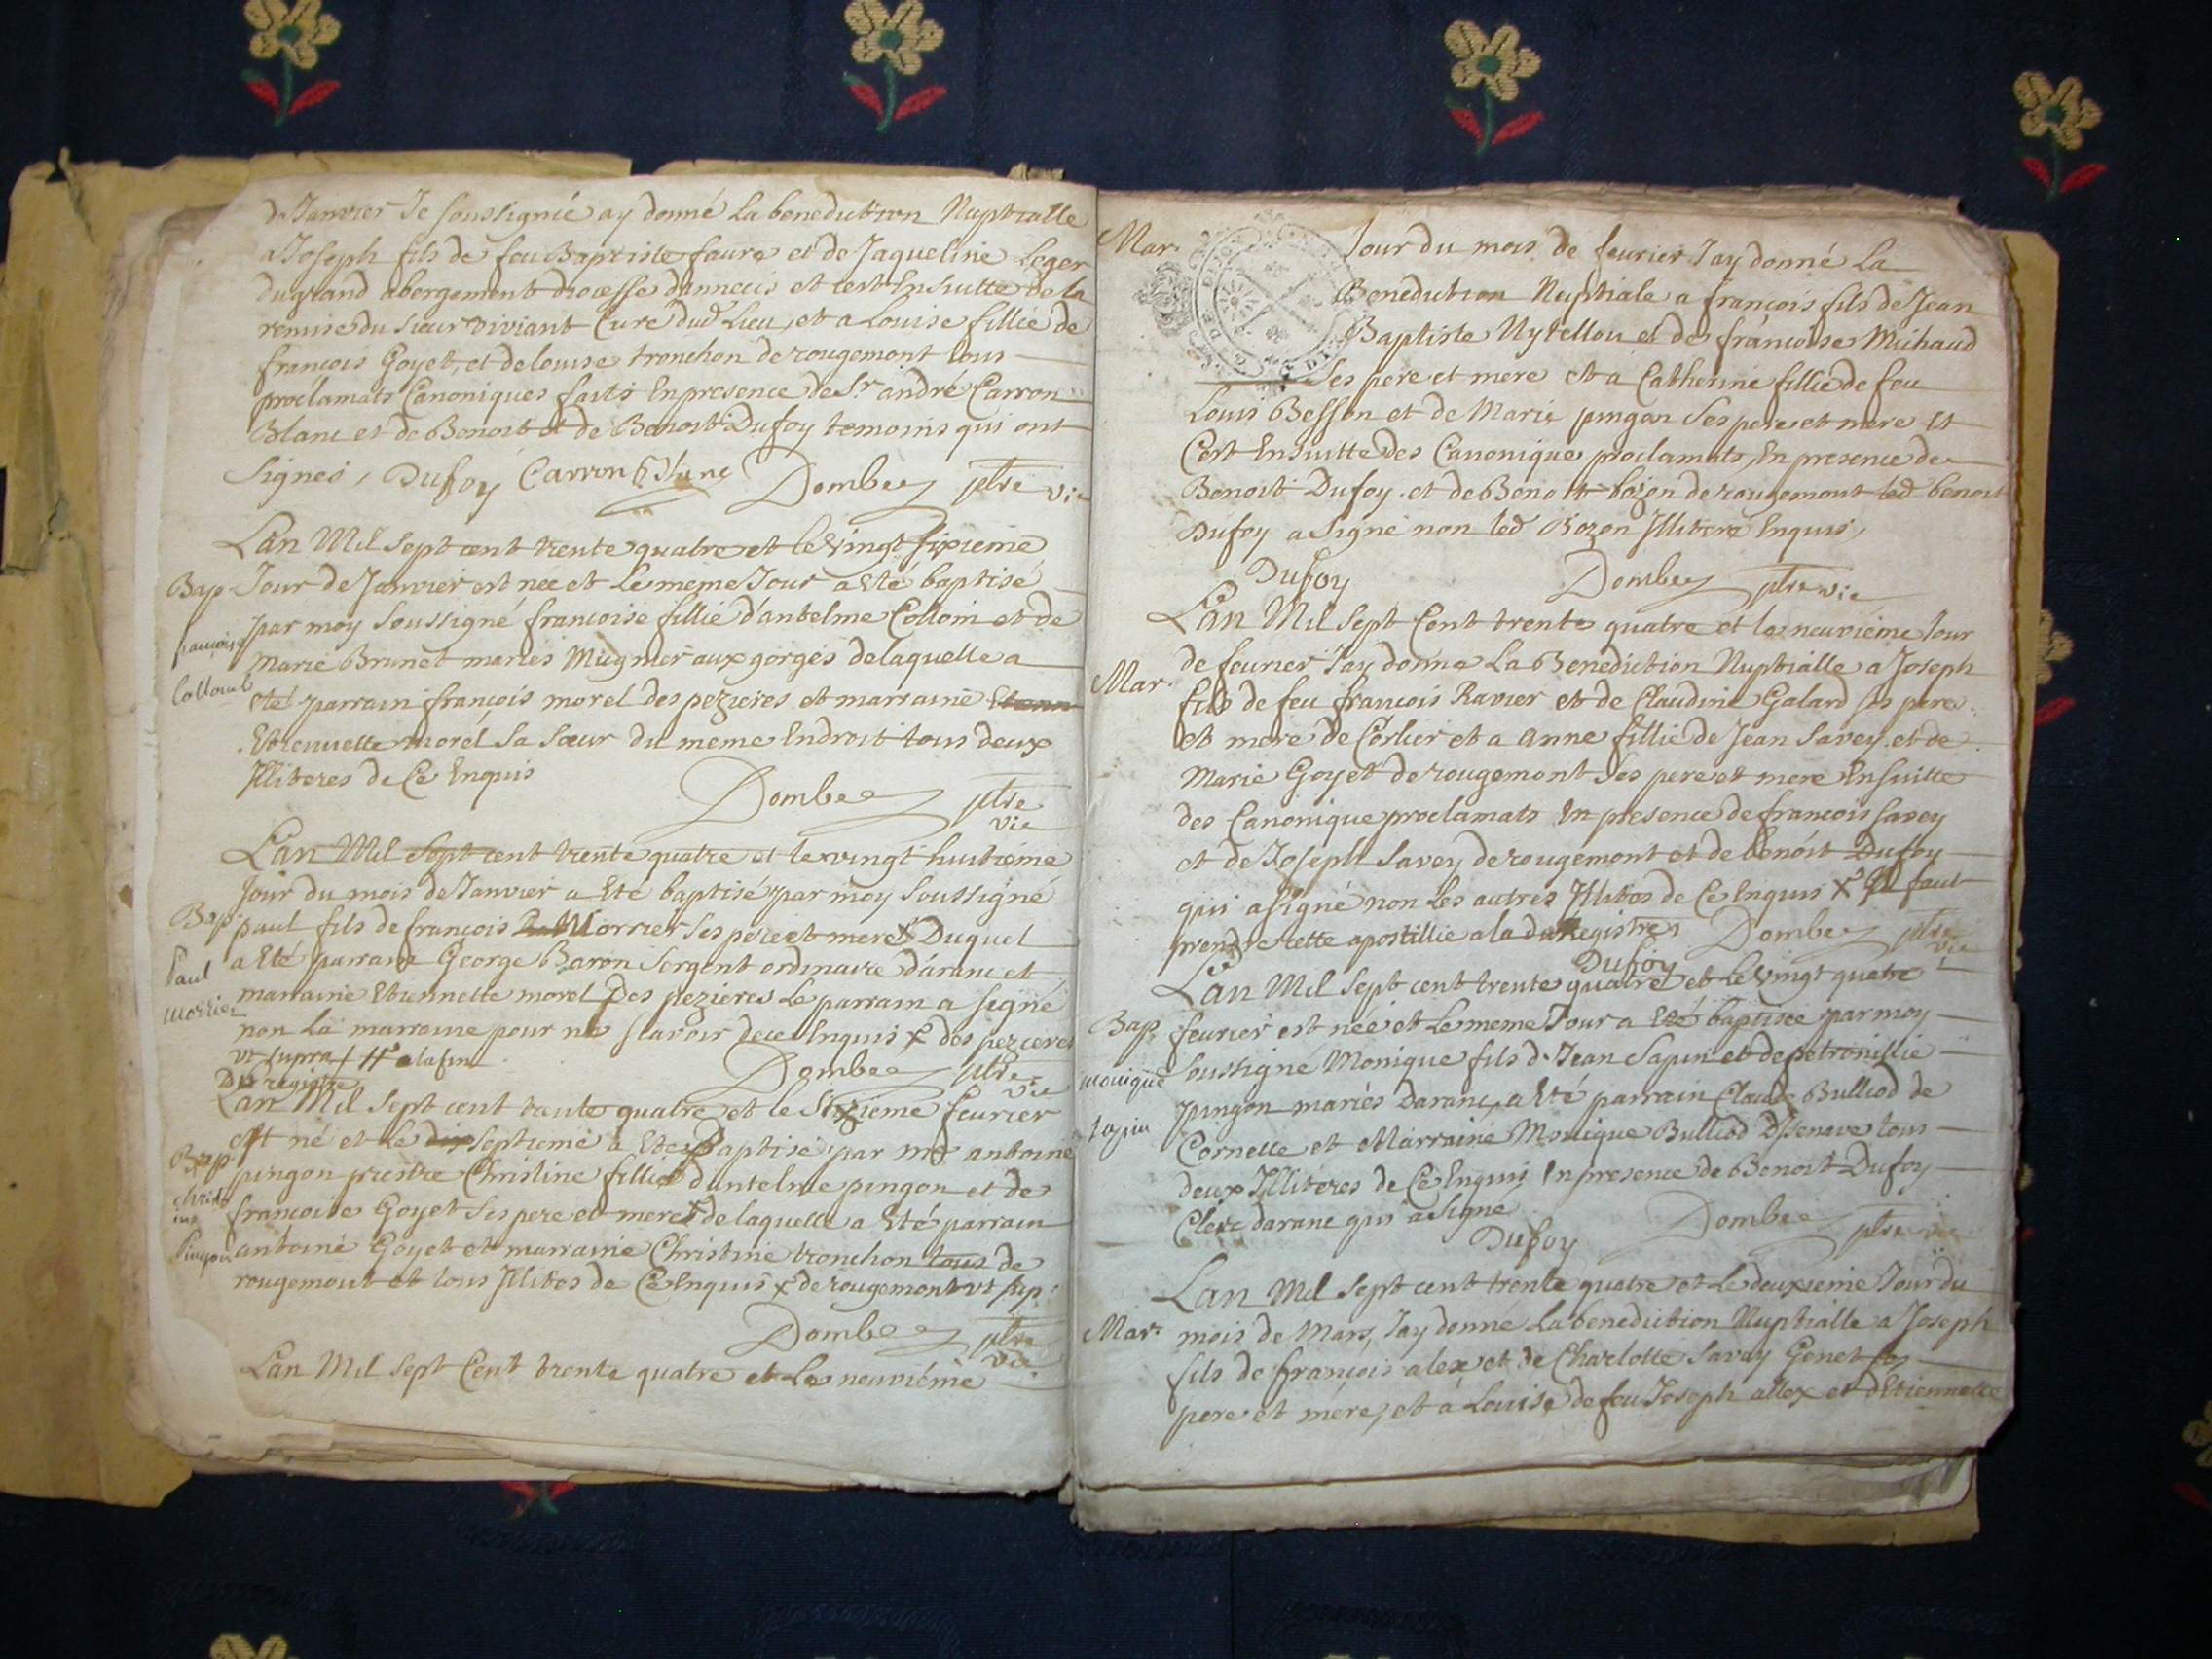 de Janvier Je soussignié ay donné La benediction Nuptialle
a Joseph fils de feu Baptiste faure et de Jaqueline Leger
du grand abergement diocesse d'annecis et cest Ensuitte de la
remise du sieur viviant Curé dud Lieu, et a Louise fillie de
françois Goyet, et de louise tronchon de rougemont tous
proclamats Canoniques faits En presence de Sr andré Carron
Blanc et de Benoit et de Benoit Dufoy temoins qui ont
Signes, Dufoy Carron Blanc Dombey ptre vic
Lan Mil Sept cent trente quatre et le vingt sixieme
Bap Jour de Janvier est née et Le meme Jour a Eté baptisé
par moy Soussigné françoise fillie d'antelme Colloin et de
françoise
Marie Brunet mariés Mugnier aux gorges de laquelle a
Eté parrain françois morel des pezieres et marraine
Etiennette morel Sa Sœur du meme Endroit tous deux
Illiteres de Ce Enquis
Dombey ptre
vic
Lan Mil Sept cent trente quatre et le vingt huitieme
Jour du mois de Janvier a Eté baptisé par moy Soussigné
Bap paul fils de françois Morrier ses pere et mere x Duquel
Paul a Eté parrain George Baron Sergent ordinaire d'aranc et
morrier marraine Etiennette morel Des pezieres Le parrain a signé
non La marraine pour ne Scavoir de ce Enquis x des pezieres
vt supra / a la fin
Du registre
Dombey ptre
vic
Lan Mil Sept cent trente quatre et le Sixieme feurier
Bap est né et Le dix septieme a Eté Baptisé par md antoine
pingon prestre Christine fillie d'antelme pingon et de
Christine
françoise Goyet Ses pere et mere x de laquelle a Eté parrain
Pingon antoine Goyet et marraine Christine tronchon tous de
rougemont et tous Illites de Ce Enquis x de rougemont vt sup
Dombey ptre
vic
Lan Mil Sept Cent trente quatre et Le neuviéme
Mar. Jour du mois de feurier Jay donné La
Benediction Nuptiale a françois fils de Jean
Baptiste Nytellou et de françoise Michaud
Ses pere et mere et a Catherine fillie de feu
Louis Besson et de Marie pingon Ses pere et mere Et
Cest Ensuitte des Canonique proclamats, En presence de
Benoit Dufoy et de Benoit bozon de rougemont led benoit
Dufoy a Signé non led Bozon Illitere Enquis,
Dufoy Dombey ptre vic
Lan Mil Sept Cent trente quatre et le neuvieme Jour
de feurier Jay donné La Benediction Nuptialle a Joseph
Mar. fils de feu françois Ravier et de Claudine Galard ses pere
et mere de Corlier et a Anne fillie de Jean Savey et de
Marie Goyet de rougemont Ses pere et mere Ensuitte
des Canonique proclamats En presence de francois Savey
et de Joseph Savey de rougemont et de benoit Dufoy
qui a signé non Les autres Illites de Ce Enquis x Il faut
prendre cette apostillie a la du Registre Dombey ptre
vic
Dufoy
Lan Mil Sept cent trente quatre et Le vingt quatre
Bap. feurier est née et Le meme Jour a Eté baptisée par moy
monique Soussigné Monique fils de Jean Sapin et de petronillie
Sapin pingon mariés Daranc, a Eté parrain Claude Bulliod de
Cornelle et Marraine Monique Bulliod D'Izenave tous
deux Illiteres de Ce Enquis En presence de Benoit Dufoy
Clerc daranc qui a Signé
Dufoy Dombey ptre vic
Lan Mil Sept cent trente quatre et Le deuxieme Jour du
Mar. mois de Mars, Jay donné La benediction Nuptialle a Joseph
fils de françois alex et de Charlotte Savay Genet ses
pere et mere, et à Louise de feu Joseph allex et d'Etiennette